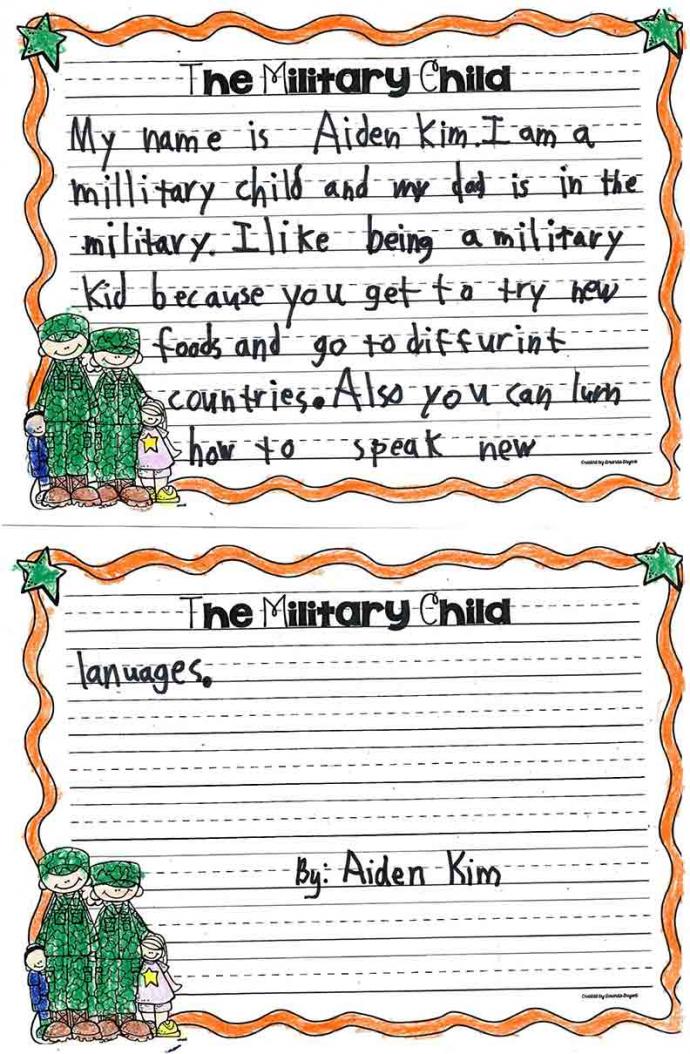 The Military Child
My name is Aiden Kim. I am a
millitary child and my dad is in the
military. I like being a military
Kid because you get to try new
foods and go to diffurint
countries. Also you can lurn
how to speak new
Created by Amanda Bryant
The Military Child
lanuages.
By: Aiden Kim
Created by Amanda Bryant